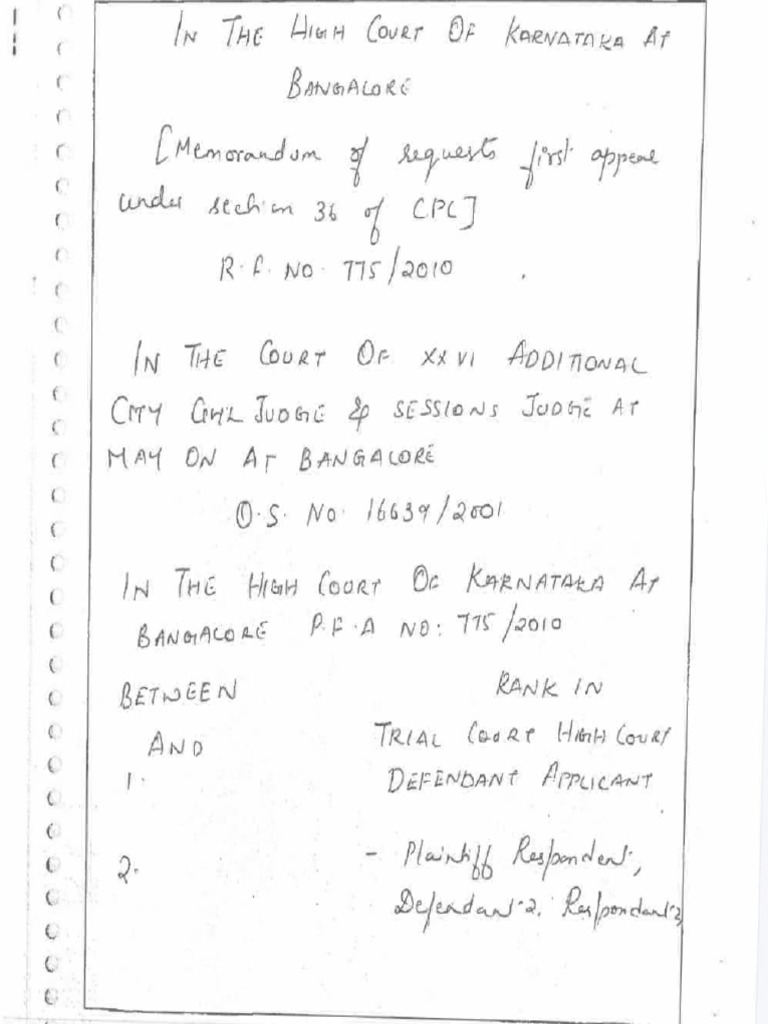 IN THE HIGH COURT OF KARNATAKA AT
BANGALORE
[Memorandum of requests first appeal
under section 36 of CPC]
R.F. NO. 775/2010
IN THE COURT OF XXVI ADDITIONAL
CITY CIVIL JUDGE & SESSIONS JUDGE AT
MAY ON AT BANGALORE
O.S. NO. 16639/2001
IN THE HIGH COURT OF KARNATAKA AT
BANGALORE P.F.A NO: 775/2010
BETWEEN RANK IN
AND TRIAL COURT HIGH COURT
1. DEFENDANT APPLICANT
2. - Plaintiff Respondent,
Defendant-2. Respondant-2